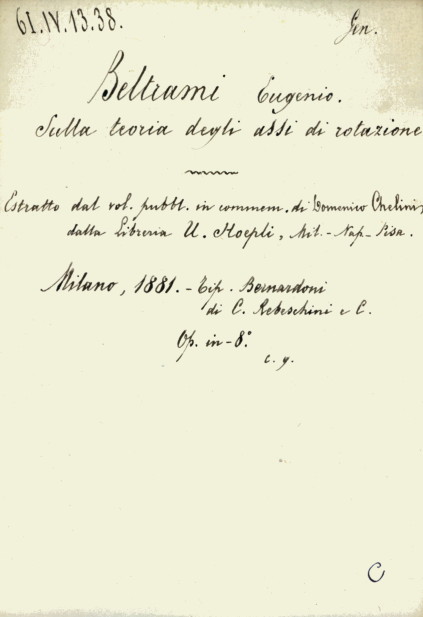 61.IV.13.38.
Gen.
Beltrami Eugenio.
Sulla teoria degli assi di rotazione
Estratto dal vol. pubbl. in commem. di Domenico Chelini,
dalla Libreria U. Hoepli, Mil.-Nap-Pisa.
Milano, 1881. - Tip. Bernardoni
di C. Rebeschini e C.
Op. in-8.°
c. g.
C